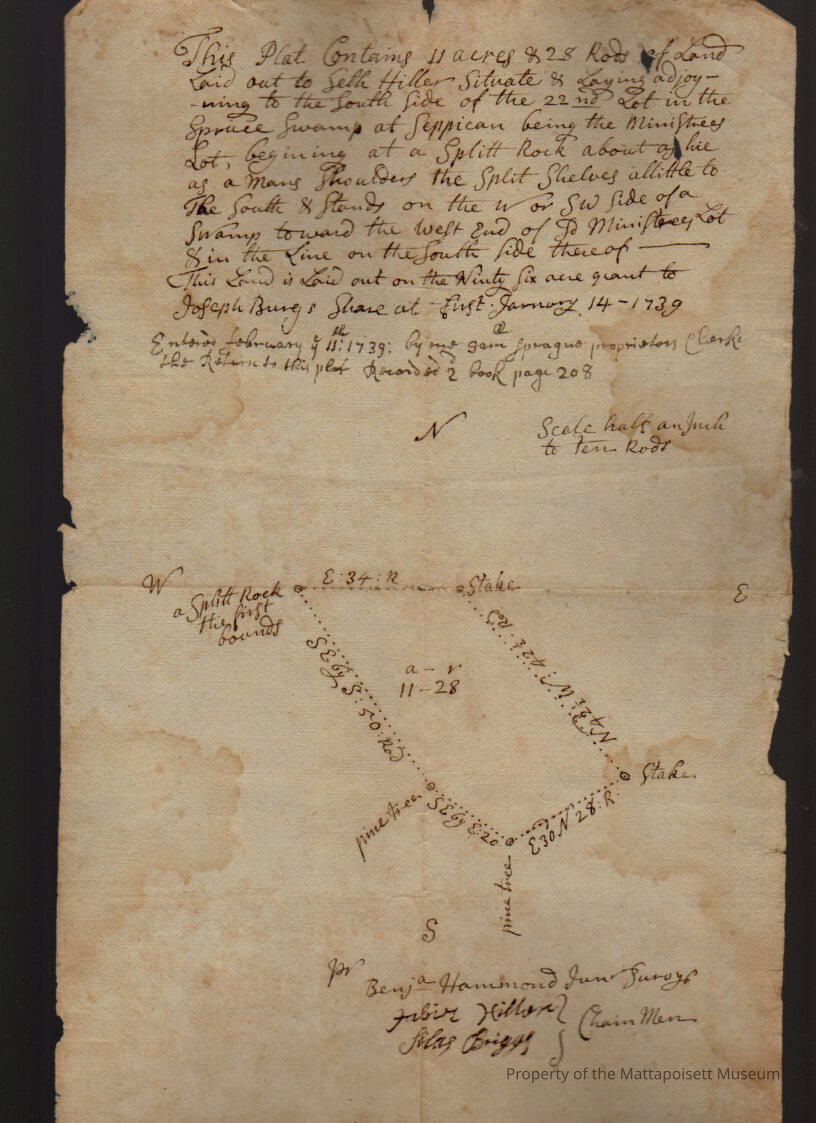 This Plat Contains 11 acres & 28 Rods of Land
Laid out to Seth Hiller Situate & Laying adjoy-
-ning to the South Side of the 22nd Lot in the
Spruce Swamp at Seppican being the Ministrees
Lot, begining at a Splitt Rock about as hie
as a Mans Shoulders the Split Shelves allittle to
The South & Stands on the W or SW Side of a
Swamp toward the West End of Sd Ministrees Lot
& in the Line on the South Side thereof
This Land is Laid out on the Ninty Six acre grant to
Joseph Burgs Share at First. January 14-1739
Entered february ye 11th: 1739: by me Sam Sprague proprietors Clerk
the Return to this plat Recorded 2 book page 208
N
Scale half an Inch
to ten Rods
W
E:34:R
Stake
E
a Splitt Rock
the first
bounds
a - r
11-28
SE by S: 50: Rod
N 42½ W: 42½ Rod
Stake
pine tree
SE by E: 20
E 30 N 28:R
pine tree
S
pr
Benja Hammond Junr Survyr
Hiller
Silas Briggs
Chain Men
Property of the Mattapoisett Museum